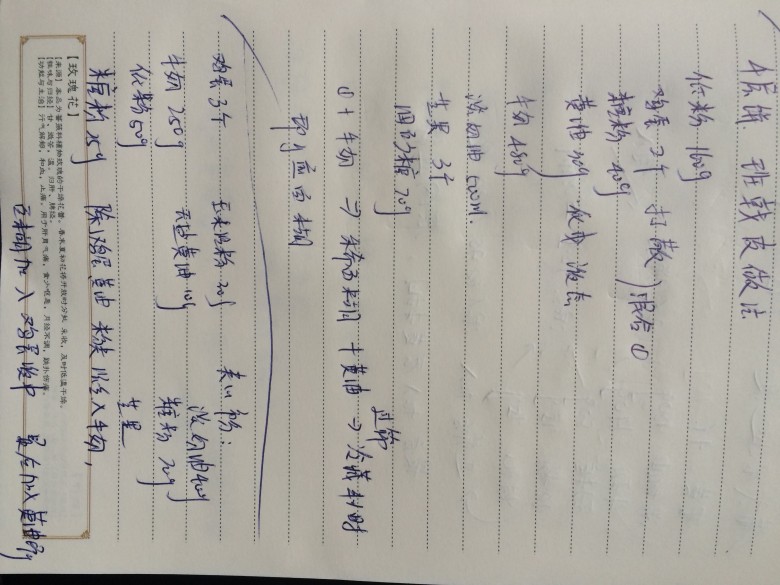 千层饼 班戟皮做法
低粉 160g
鸡蛋 3个 打散 混合①
糖粉 40g
黄油 30g 化成液态
牛奶 480g
淡奶油 500ml
芒果 3个
细砂糖 70g
过筛
①+牛奶 ⇒ 来筛面糊 + 黄油 → 冷藏半小时
即可煎面糊
鸡蛋 3个 玉米淀粉 20g 夹心馅:
牛奶 250g 无盐黄油 10g 淡奶油 400g
低粉 50g 糖粉 20g
芒果
糖粉 25g 除鸡蛋 黄油 粉类 混合入牛奶,
【玫瑰花】
【来源】本品为蔷薇科植物玫瑰的干燥花蕾。春末夏初花将开放时分批采收,及时低温干燥。
【性味与归经】甘、微苦,温。归肝、脾经。
【功能与主治】行气解郁,和血,止痛。用于肝胃气痛,食少呕恶,月经不调,跌扑伤痛。
面糊加入鸡蛋液中 最后加入黄油